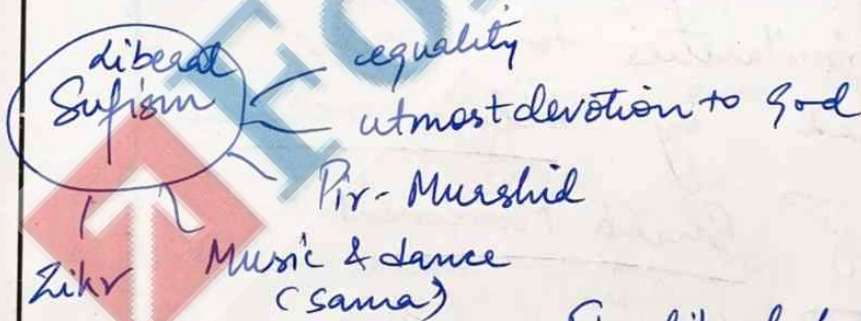 Liberal
Sufism
equality
utmost devotion to God
Pir-Murshid
Music & dance
(Sama)
Zikr